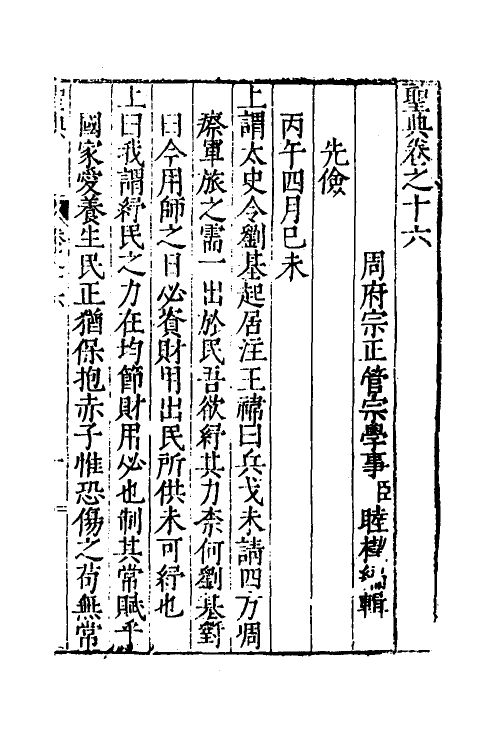 聖典卷之十六
周府宗正管宗學事臣睦㮮編輯
先儉
丙午四月己未
上謂太史令劉基起居注王禕曰兵戈未請四方凋
瘵軍旅之需一出於民吾欲紓其力柰何劉基對
曰今用師之日必資財用出民所供未可紓也
上曰我謂紓民之力在均節財用必也制其常賦乎
國家愛養生民正猶保抱赤子惟恐傷之苟無常
聖典